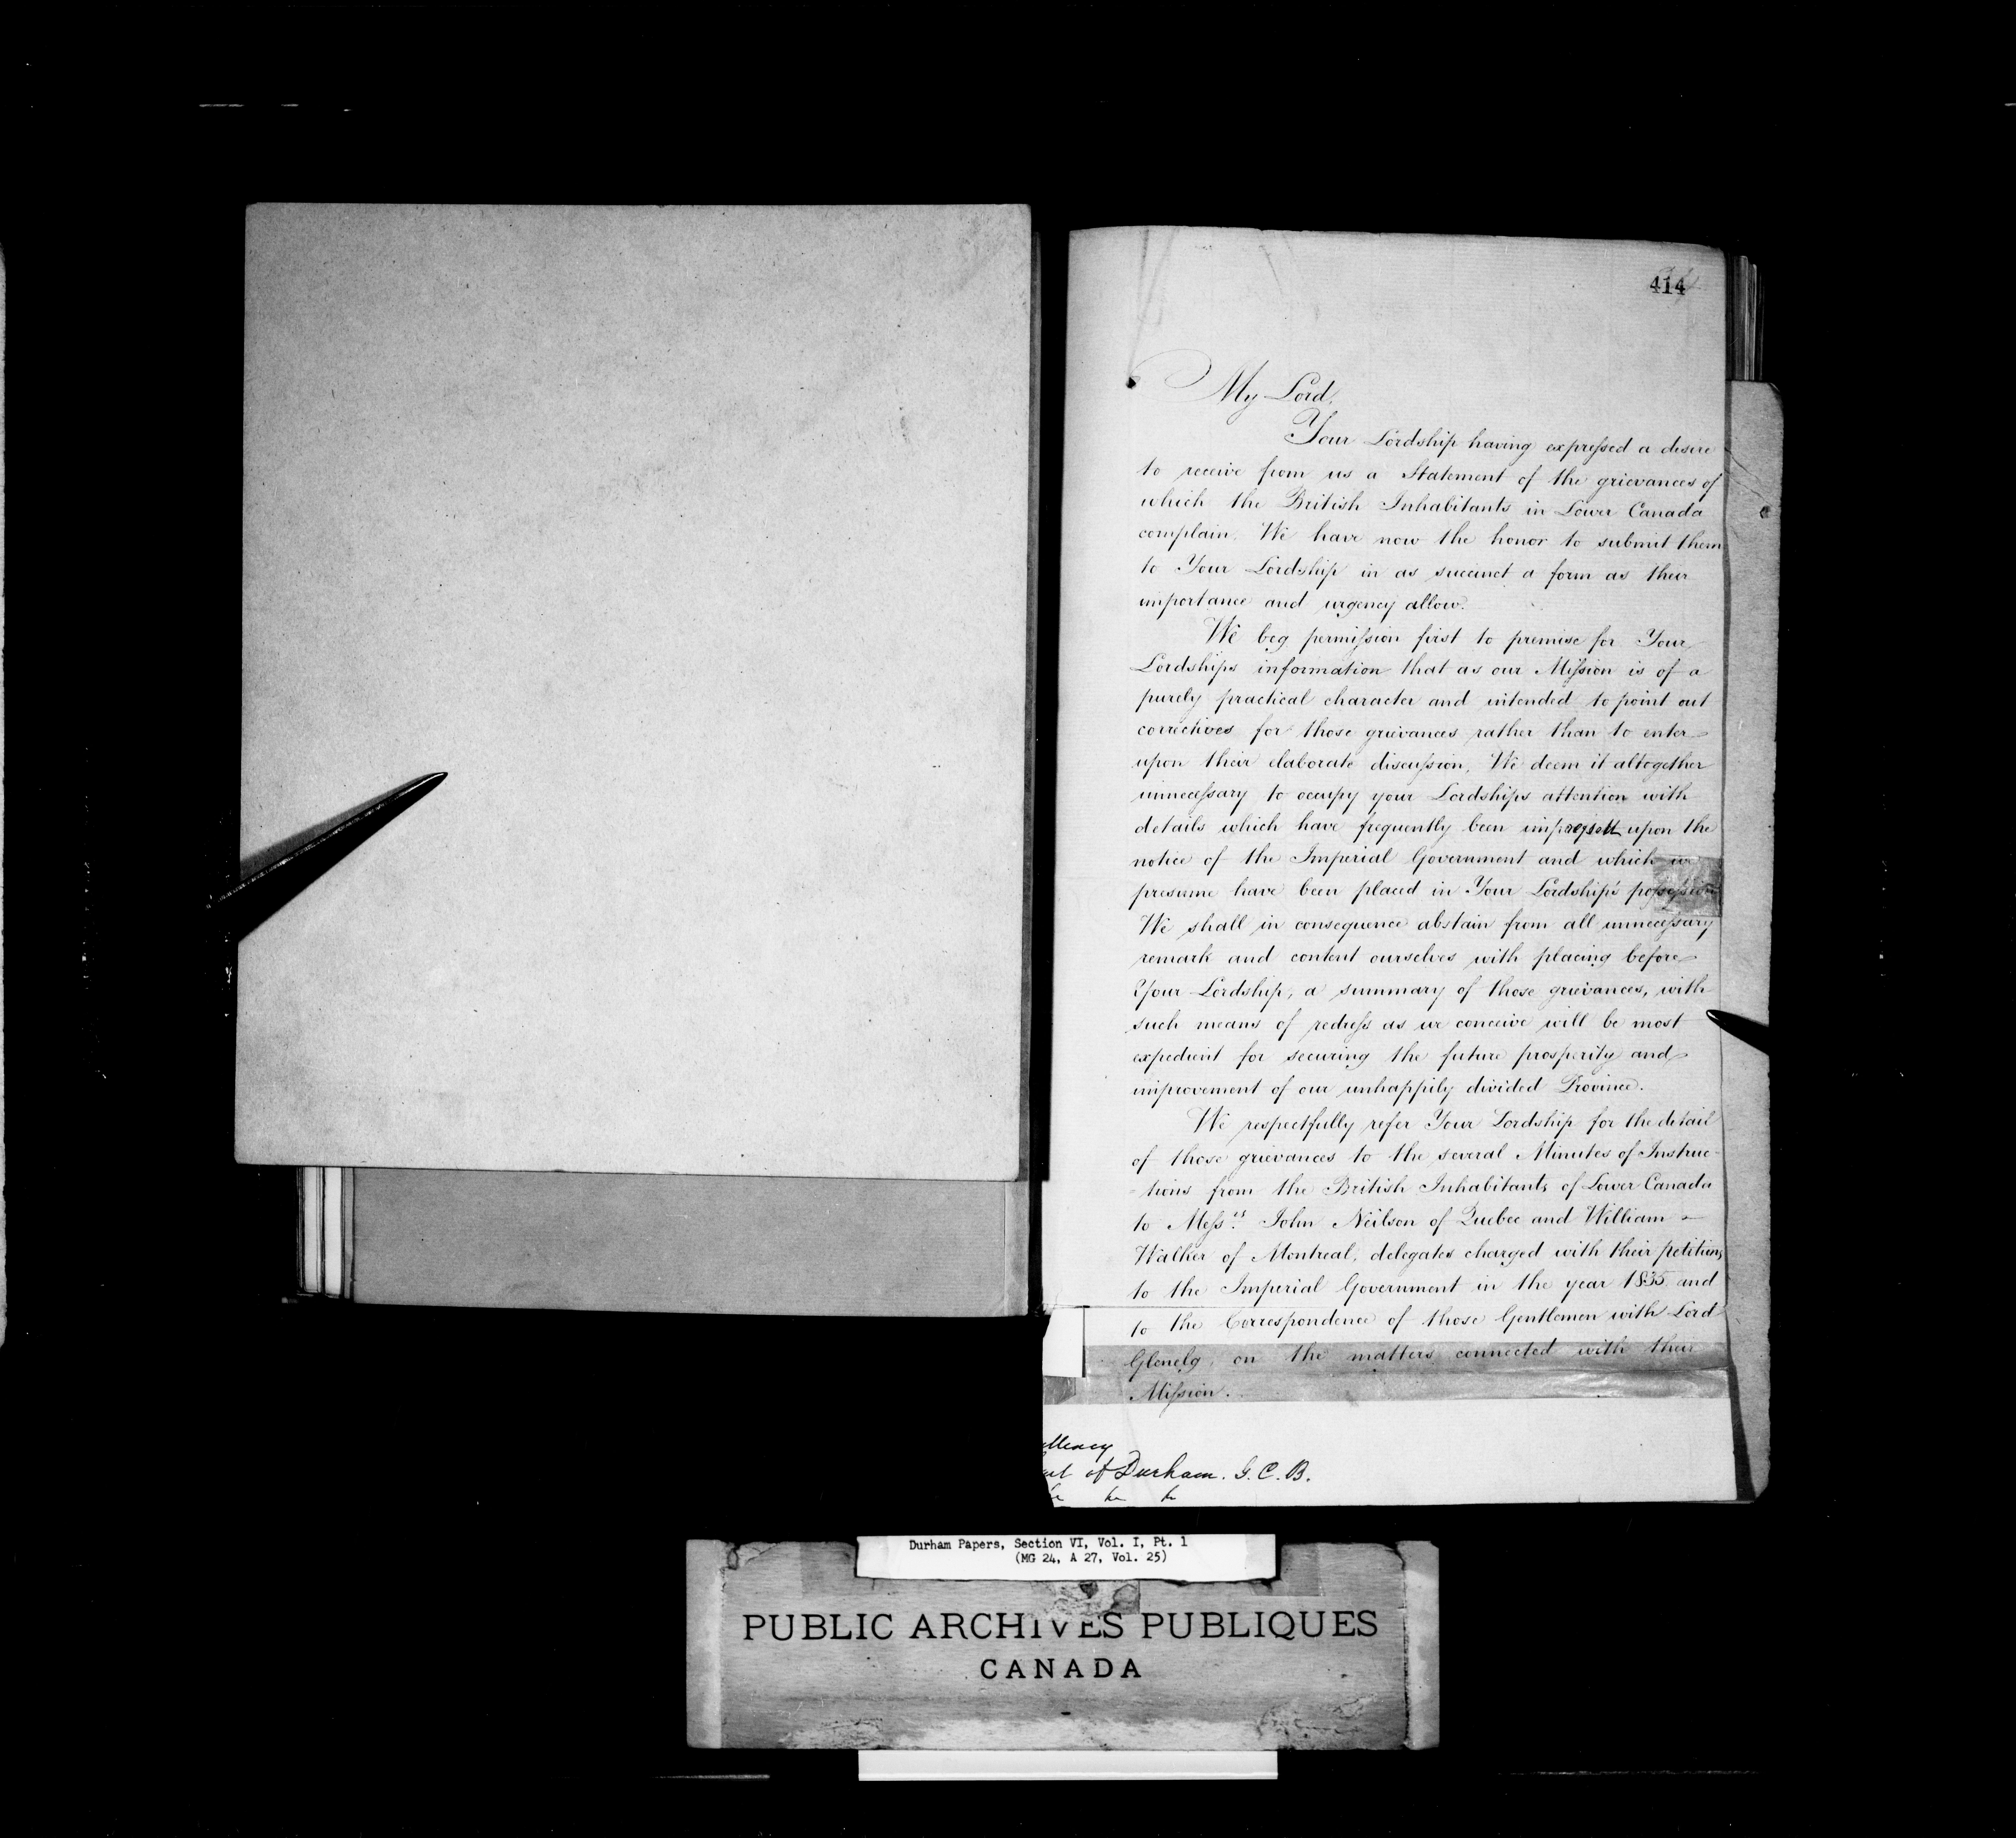 414
My Lord,
Your Lordship having expressed a desire
to receive from us a Statement of the grievances of
which the British Inhabitants in Lower Canada
complain. We have now the honor to submit them
to Your Lordship in as succinct a form as their
importance and urgency allow.
We beg permission first to premise for Your
Lordships information that as our Mission is of a
purely practical character and intended to point out
correctives for those grievances rather than to enter
upon their elaborate discussion, We deem it altogether
unnecessary to occupy your Lordships attention with
details which have frequently been upon the
notice of the Imperial Government and which we
presume have been placed in Your Lordship's possession
We shall in consequence abstain from all unnecessary
remark and content ourselves with placing before
Your Lordship, a summary of those grievances, with
such means of redress as we conceive will be most
expedient for securing the future prosperity and
improvement of our unhappily divided Province.
We respectfully refer Your Lordship for the detail
of those grievances to the several Minutes of Instruc-
-tions from the British Inhabitants of Lower Canada
to Messrs John Neilson of Quebec and William
Walker of Montreal, delegates charged with their petitions
to the Imperial Government in the year 1835 and
to the Correspondence of those Gentlemen with Lord
Glenelg, on the matters connected with their
Mission.
ellency
of Durham. G. C. B.
Durham Papers, Section VI, Vol. I, Pt. 1
(MG 24, A 27, Vol. 25)
PUBLIC ARCHIVES PUBLIQUES
CANADA